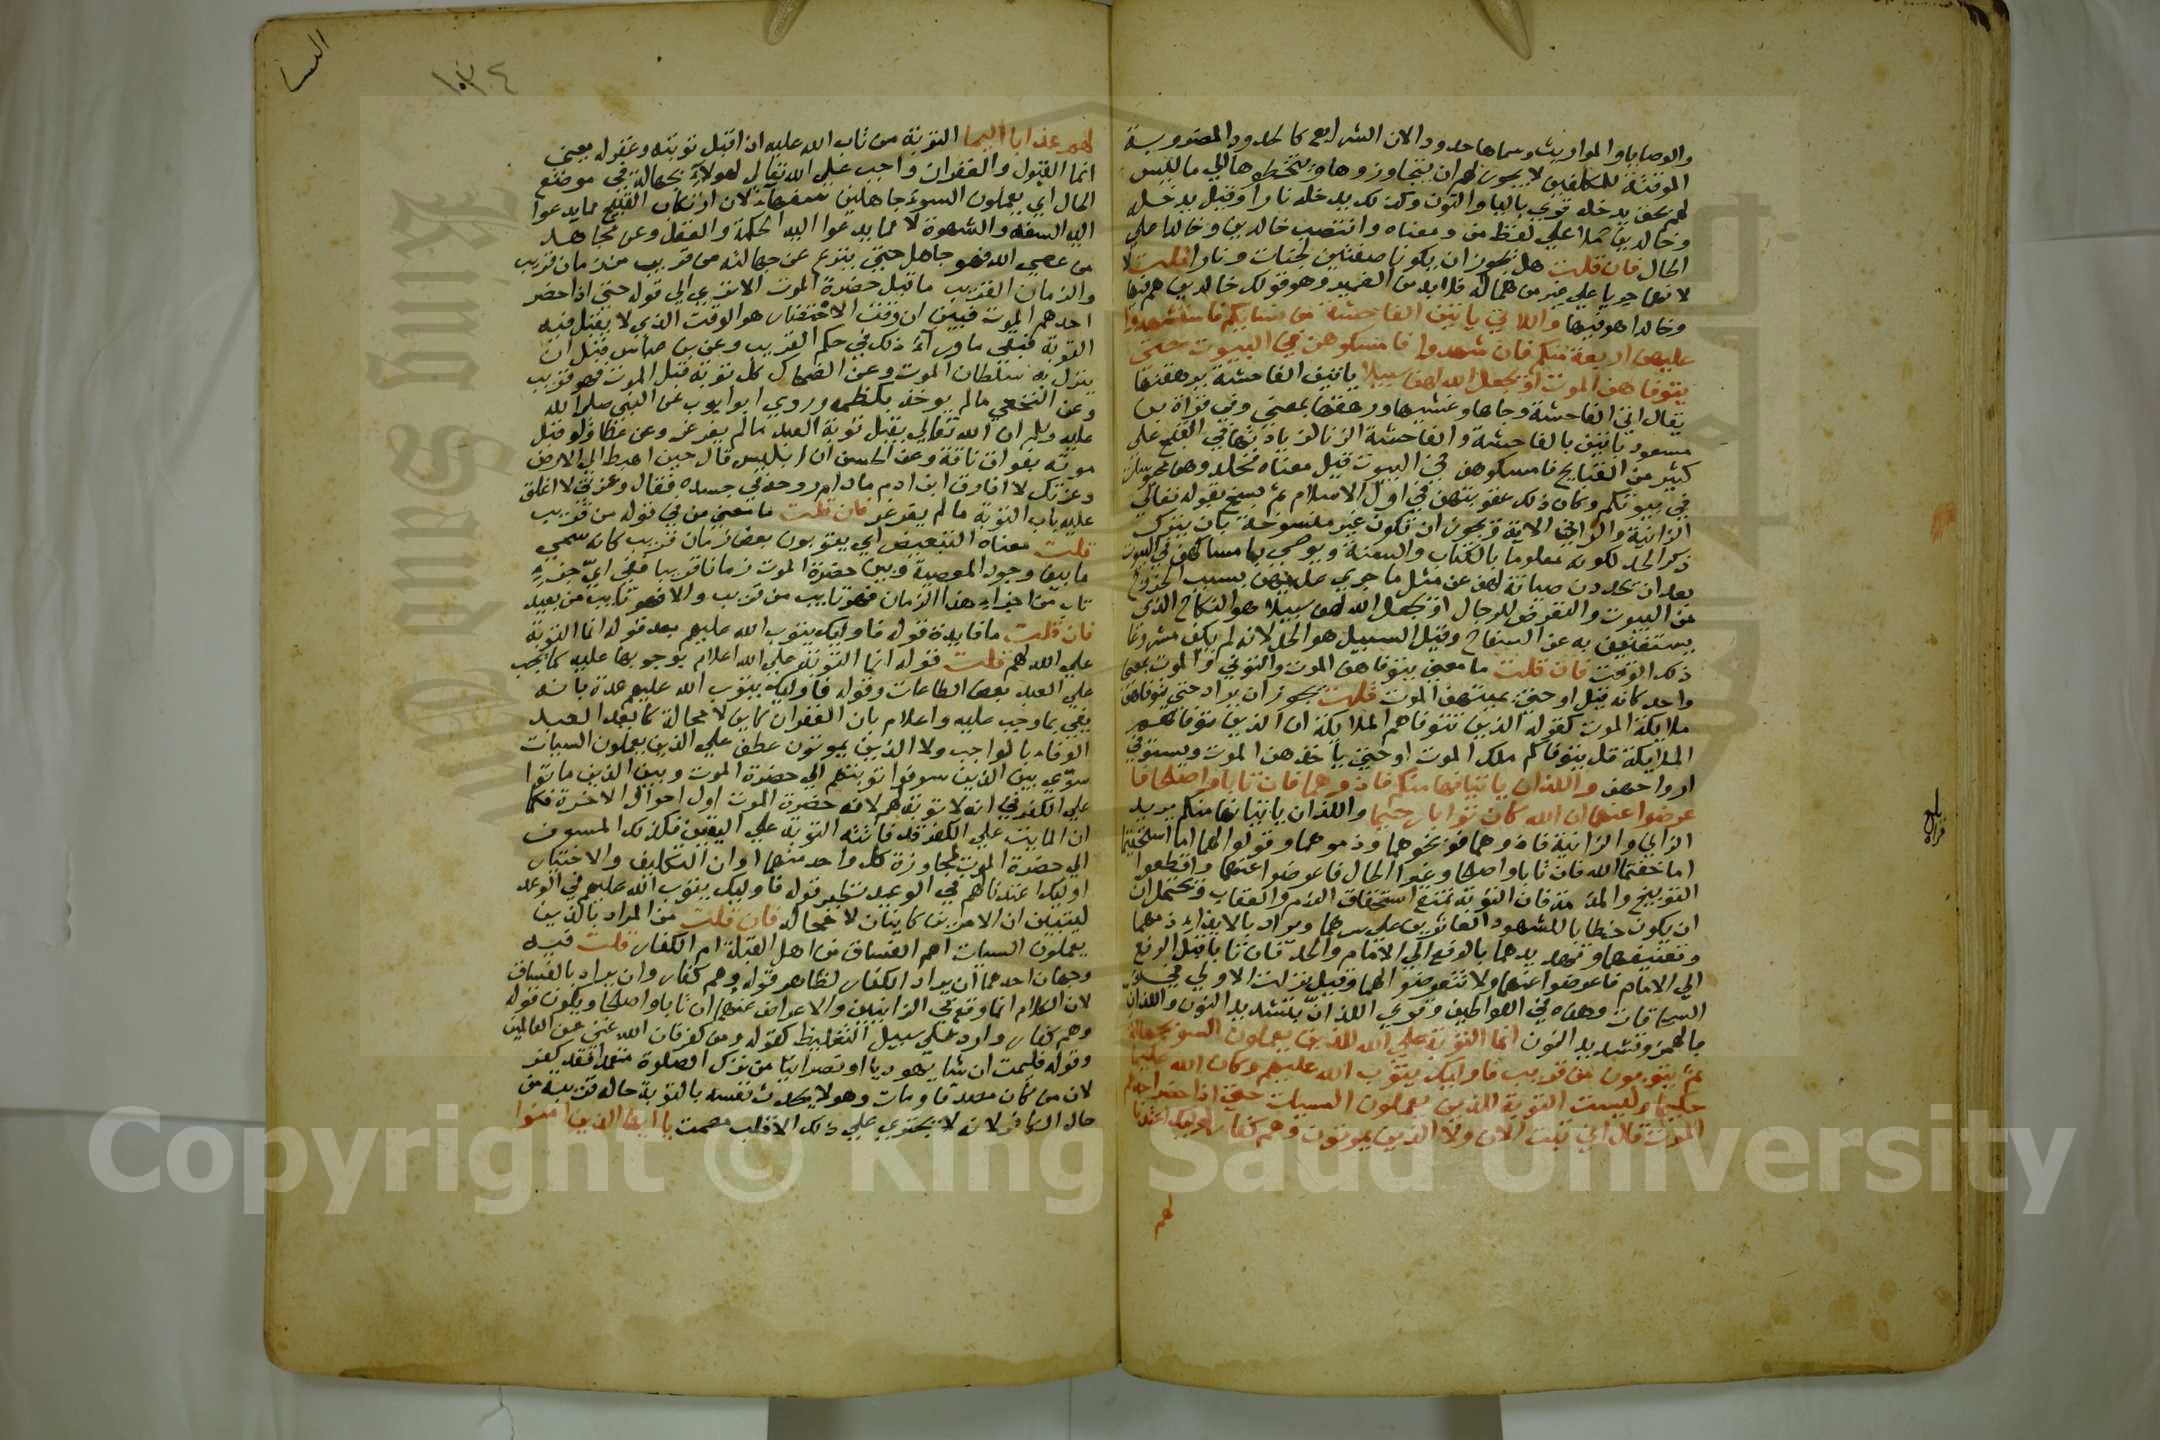 والوصايا والمواريث وسماها حدودا لان الشرايع كالحدود المضروبة
الموقتة للمكلفين لا يجوز لهم ان يتجاوزوها ويتخطوها الي ما ليس
لهم بحق يدخله قري باليا والنون وكذلك يدخله نارا وقيل يدخله
وخالدين حملا علي لفظ من ومعناه وانتصب خالدين وخالدا علي
الحال فان قلت هل يجوز ان يكونا صفتين لجنات ونارا قلت لا
لانهما جريا علي غير من هما له فلا بد من الضمير وهو قولك خالدين هم فيها
وخالدا هو فيها واللاتي ياتين الفاحشة من نسايكم فاستشهدوا
عليهن اربعة منكم فان شهدوا فامسكوهن في البيوت حتي
يتوفاهن الموت او يجعل الله لهن سبيلا ياتين الفاحشة يرهقنها
يقال اتي الفاحشة وجاها وغشيها ورهقها بمعني وفي قراة بن
مسعود ياتين بالفاحشة والفاحشة الزنا لزيادتها في القبح علي
كثير من القبايح فامسكوهن في البيوت قيل معناه فخلدوهن محبوسات
في بيوتكم وكان ذلك عقوبتهن في اول الاسلام ثم نسخ بقوله تعالي
الزانية والزاني الاية ويجوز ان تكون غير منسوخة بان يترك
ذكر الحد لكونه معلوما بالكتاب والسنة ويوصي بامساكهن في البيوت
بعد ان يحددن صيانة لهن عن مثل ما جري عليهن بسبب الخروج
من البيوت والتعرض للرجال او يجعل الله لهن سبيلا هو النكاح الذي
يستغنين به عن السفاح وقيل السبيل هو الحد لانه لم يكن مشروعا
ذلك الوقت فان قلت ما معني يتوفاهن الموت والتوفي والموت بمعني
واحد كانه قيل او حتي يميتهن الموت قلت يجوز ان يراد حتي يتوفاهن
ملايكة الموت كقوله الذين تتوفاهم الملايكة ان الذين توفاهم
الملايكة قل يتوفاكم ملك الموت او حتي ياخذهن الموت ويستوفي
ارواحهن واللذان ياتيانها منكم فاذوهما فان تابا واصلحا فا
عرضوا عنهما ان الله كان توابا رحيما واللذان ياتيانها منكم يريد
الزاني والزانية فاذوهما فوبخوهما وذموهما وقولوا لهما اما استحييتما
اما خفتما الله فان تابا واصلحا وغيرا الحال فاعرضوا عنهما واقطعوا
التوبيخ والمذمة فان التوبة تمنع استحقاق الذم والعقاب ويحتمل ان
ان يكون خطابا للشهود العاثرين علي سرهما ويراد بالايذاء ذمهما
وتعنيفهما وتهديدهما بالرفع الي الامام والحد فان تابا قبل الرفع
الي الامام فاعرضوا عنهما ولا تتعرضوا لهما وقيل نزلت الاولي في
السحاقات وهذه في اللواطين وقري اللذان بتشديد النون واللذان
بالهمز وتشديد النون انما التوبة علي الله للذين يعملون السوء بجهالة
ثم يتوبون من قريب فاوليك يتوب الله عليهم وكان الله عليما
حكيما وليست التوبة للذين يعملون السيات حتي اذا حضر احدهم
الموت قال اني تبت الان ولا الذين يموتون وهم كفار اوليك اعتدنا
لهم
بلغ
قراة
النسا
١٥٣٤
لهم عذابا اليما التوبة من تاب الله عليه اذا قبل توبته وغفر له يعني
انما القبول والغفران واجب علي الله تعالي لهولاء بجهالة في موضع
الحال اي يعملون السوء جاهلين سفهاء لان ارتكاب القبيح مما يدعوا
اليه السفه والشهوة لا مما يدعوا اليه الحكمة والعقل وعن مجاهد
من عصي الله فهو جاهل حتي ينزع عن جهالته من قريب من زمان قريب
والزمان القريب ما قبل حضرة الموت الا تري الي قوله حتي اذا حضر
احدهم الموت فبين ان وقت الاحتضار هو الوقت الذي لا يقبل فيه
التوبة فبقي ما وراء ذلك في حكم القريب وعن بن عباس قبل ان
ينزل به سلطان الموت وعن الضحاك كل توبة قبل الموت فهو قريب
وعن النخعي ما لم يوخذ بكظمه وروي ابو ايوب عن النبي صلي الله
عليه وسلم ان الله تعالي يقبل توبة العبد ما لم يغرغر وعن عطا ولو قبل
موته بفواق ناقة وعن الحسن ان ابليس قال حين اهبط الي الارض
وعزتك لا افارق ابن ادم ما دام روحه في جسده فقال وعزتي لا اغلق
عليه باب التوبة ما لم يغرغر فان قلت ما معني من في قوله من قريب
قلت معناه التبعيض اي يتوبون بعض زمان قريب كانه سمي
ما بين وجود المعصية وبين حضرة الموت زمانا قريبا ففي اي جزء
تاب من اجزاء هذا الزمان فهو تايب من قريب والا فهو تايب من بعيد
فان قلت ما فايدة قوله فاوليك يتوب الله عليهم بعد قوله انما التوبة
علي الله لهم قلت قوله انما التوبة علي الله اعلام بوجوبها عليه كما يجب
علي العبد بعض الطاعات وقوله فاوليك يتوب الله عليهم عدة بانه
يفي بما وجب عليه واعلام بان الغفران كاين لا محالة كما يعد العبد
الوفاء بالواجب ولا الذين يموتون عطف علي الذين يعملون السيات
سوي بين الذين سوفوا توبتهم الي حضرة الموت وبين الذين ماتوا
علي الكفر في انه لا توبة لهم لان حضرة الموت اول احوال الاخرة فكما
ان المايت علي الكفر قد فاتته التوبة علي اليقين فكذلك المسوف
الي حضرة الموت لمجاوزة كل واحد منهما اوان التكليف والاختيار
اوليك اعتدنا لهم في الوعيد نظير قوله فاوليك يتوب الله عليهم في الوعد
ليتبين ان الامرين كاينان لا محالة فان قلت من المراد بالذين
يعملون السيات اهم الفساق من اهل القبلة ام الكفار قلت فيه
وجهان احدهما ان يراد الكفار لظاهر قوله وهم كفار وان يراد بالفساق
لان الكلام انما وقع في الزانيين والاعراض عنهما ان تابا واصلحا ويكون قوله
وهم كفار وارد علي سبيل التغليظ كقوله ومن كفر فان الله غني عن العالمين
وقوله فليمت ان شا يهوديا او نصرانيا من ترك الصلوة متعمدا فقد كفر
لان من كان مصدقا ومات وهو لا يحدث نفسه بالتوبة حاله قريبة من
حال الكافر لانه لا يجتري علي ذلك الا قلب مصمت يا ايها الذين امنوا
King Saud University
Copyright © King Saud University